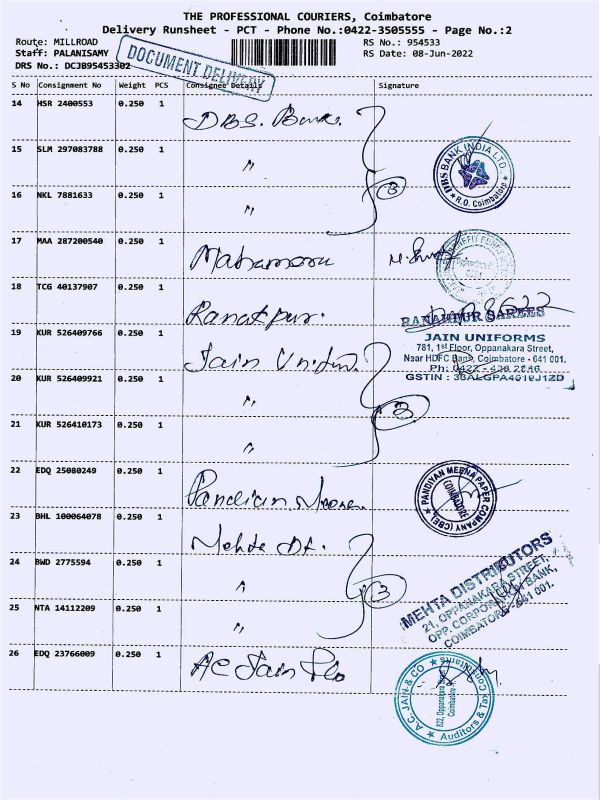 THE PROFESSIONAL COURIERS, Coimbatore
Delivery Runsheet - PCT - Phone No.:0422-3505555 - Page No.:2
Route: MILLROAD
RS No.: 954533
Staff: PALANISAMY
RS Date: 08-Jun-2022
DRS No.: DCJB95453302
DOCUMENT DELIVERY
S No Consignment No Weight PCS Consignee Details Signature
14 HSR 2400553 0.250 1 DBS. Bank.
15 SLM 297083788 0.250 1 "
16 NKL 7881633 0.250 1 "
3
DBS BANK INDIA LTD.
* R.O. Coimbatore *
17 MAA 287200540 0.250 1
18 TCG 40137907 0.250 1 Ranakpur.
RANAKPUR SAREES
19 KUR 526409766 0.250 1 Jain Uniform.
20 KUR 526409921 0.250 1 "
21 KUR 526410173 0.250 1 "
3
JAIN UNIFORMS
781, 1st Floor, Oppanakara Street,
Near HDFC Bank, Coimbatore - 641 001.
22 EDQ 25080249 0.250 1 Pandian Meena
PANDIYAN MEENA PAPER COMPANY (CBE)
COIMBATORE
23 BHL 100064078 0.250 1 Mehta Dt.
24 BWD 2775594 0.250 1 "
25 NTA 14112209 0.250 1 "
3
MEHTA DISTRIBUTORS
21, OPPANAKARA STREET,
OPP. CORPORATION BANK,
COIMBATORE - 641 001.
26 EDQ 23766009 0.250 1 AC Jain &Co
A.C. JAIN & CO
822, Oppanakara
Coimbatore
Auditors & Tax Consultants